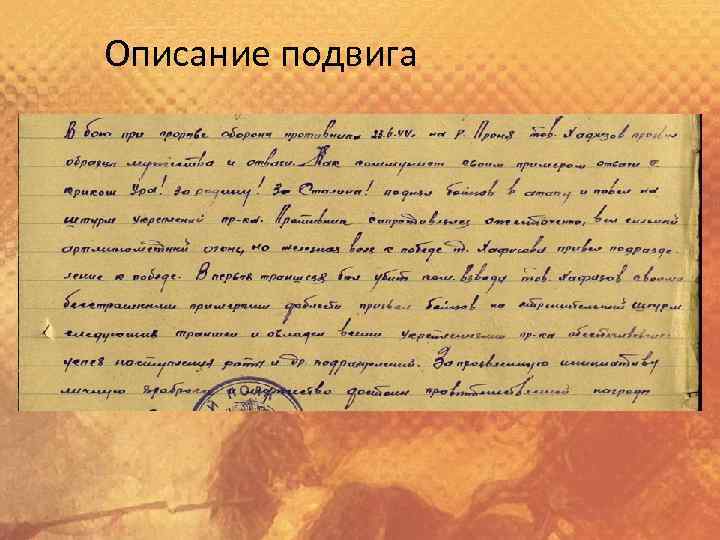 Описание подвига
В бою при прорыве обороны противника 23.6.44. на р. Проня тов. Хафизов проявил
образец мужества и отваги. Как коммунист своим примером отваги с
криком Ура! За родину! За Сталина! поднял бойцов в атаку и повел на
штурм укреплений пр-ка. Противник сопротивлялся ожесточенно, вел сильный
артпулеметный огонь, но железная воля к победе Хафизова привел подразде-
ление к победе. В первой траншеи был убит ком. взвода тов. Хафизов своими
бесстрашными примерами доблести призвал бойцов на стремительный штурм
следующих траншей и овладел всеми укреплениями пр-ка обеспечивая
успех наступления роты и др. подразделений. За проявленную инициативу
личную храбрость и мужество достоин правительственной награды